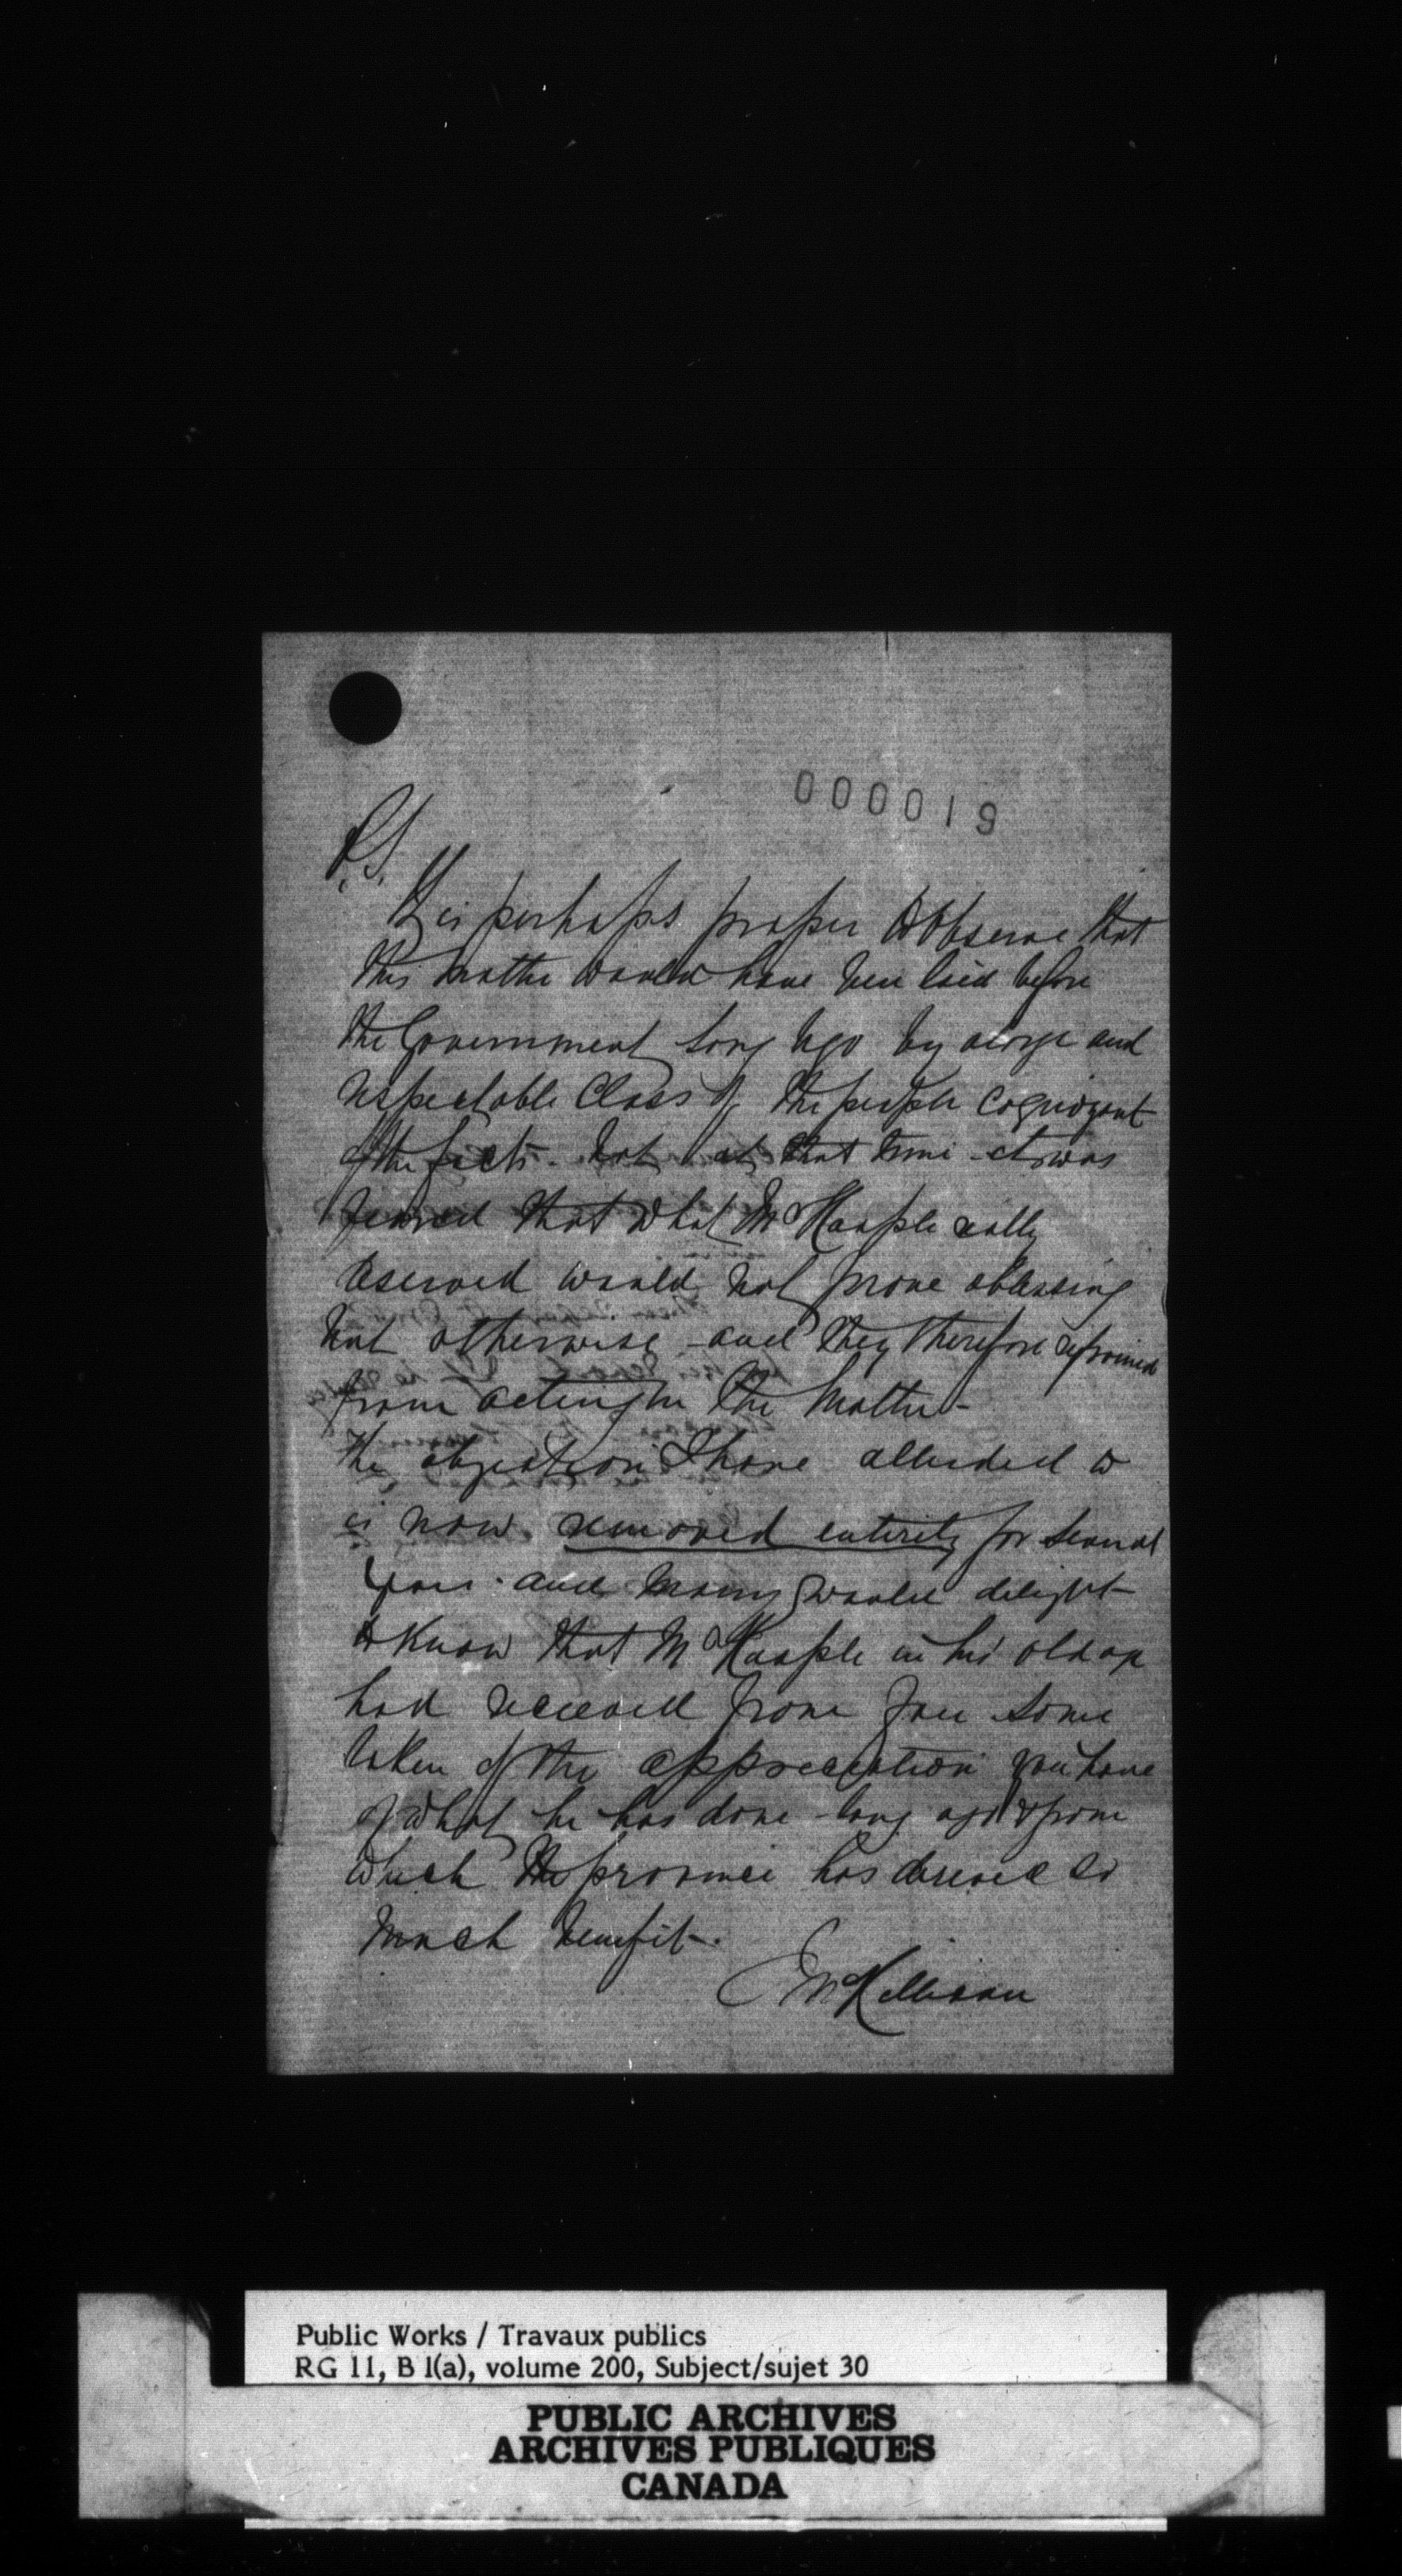 000019
P.S.
It is perhaps proper to observe that
this matter would have been laid before
the Government long ago by a large and
respectable Class of the people Cognizant
of the facts. but at that time it was
feared that what Mr Kaaple really
deserved would not prove a blessing
but otherwise - and they therefore refrained
from acting in the Matter -
the objection I have alluded to
is now removed entirely for several
years and many would delight
to Know that Mr Kaaple in his old age
had received from you some
token of the appreciation you have
of what he has done - long ago & from
which the province has derived so
much benefit.
Public Works / Travaux publics
RG 11, B 1(a), volume 200, Subject/sujet 30
PUBLIC ARCHIVES
ARCHIVES PUBLIQUES
CANADA